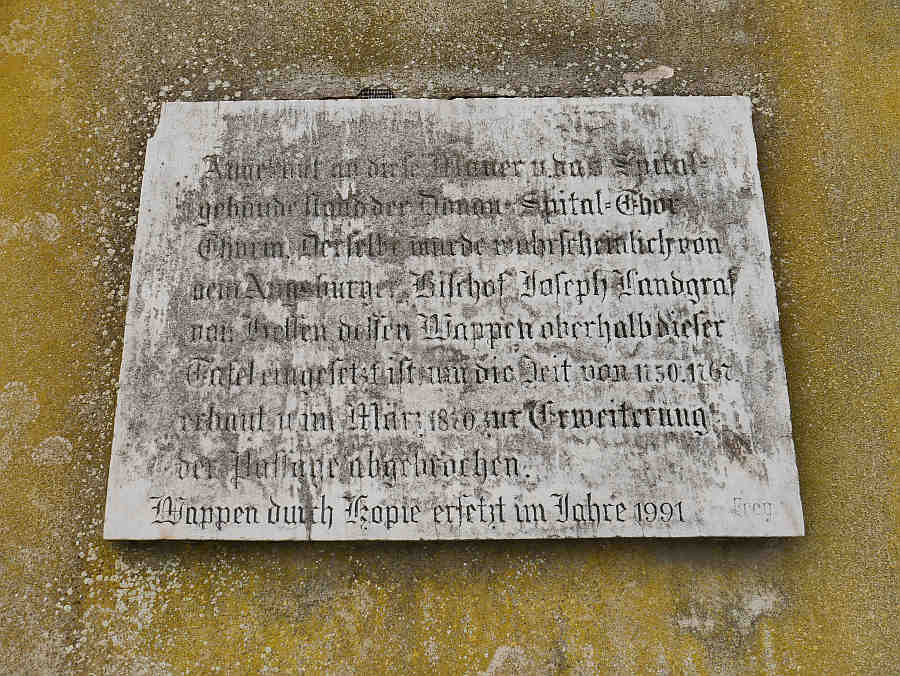 Angebaut an diese Mauer u. das Spital=
gebäude stand der Donau=Spital=Thor
Thurm. Derselbe wurde wahrscheinlich von
dem Augsburger Bischof Joseph Landgraf
von Hessen dessen Wappen oberhalb dieser
Tafel eingesetzt ist, um die Zeit von 1750.1767
erbaut u. im März zur Erweiterung
der Passage abgebrochen.
Wappen durch Kopie ersetzt im Jahre 1991